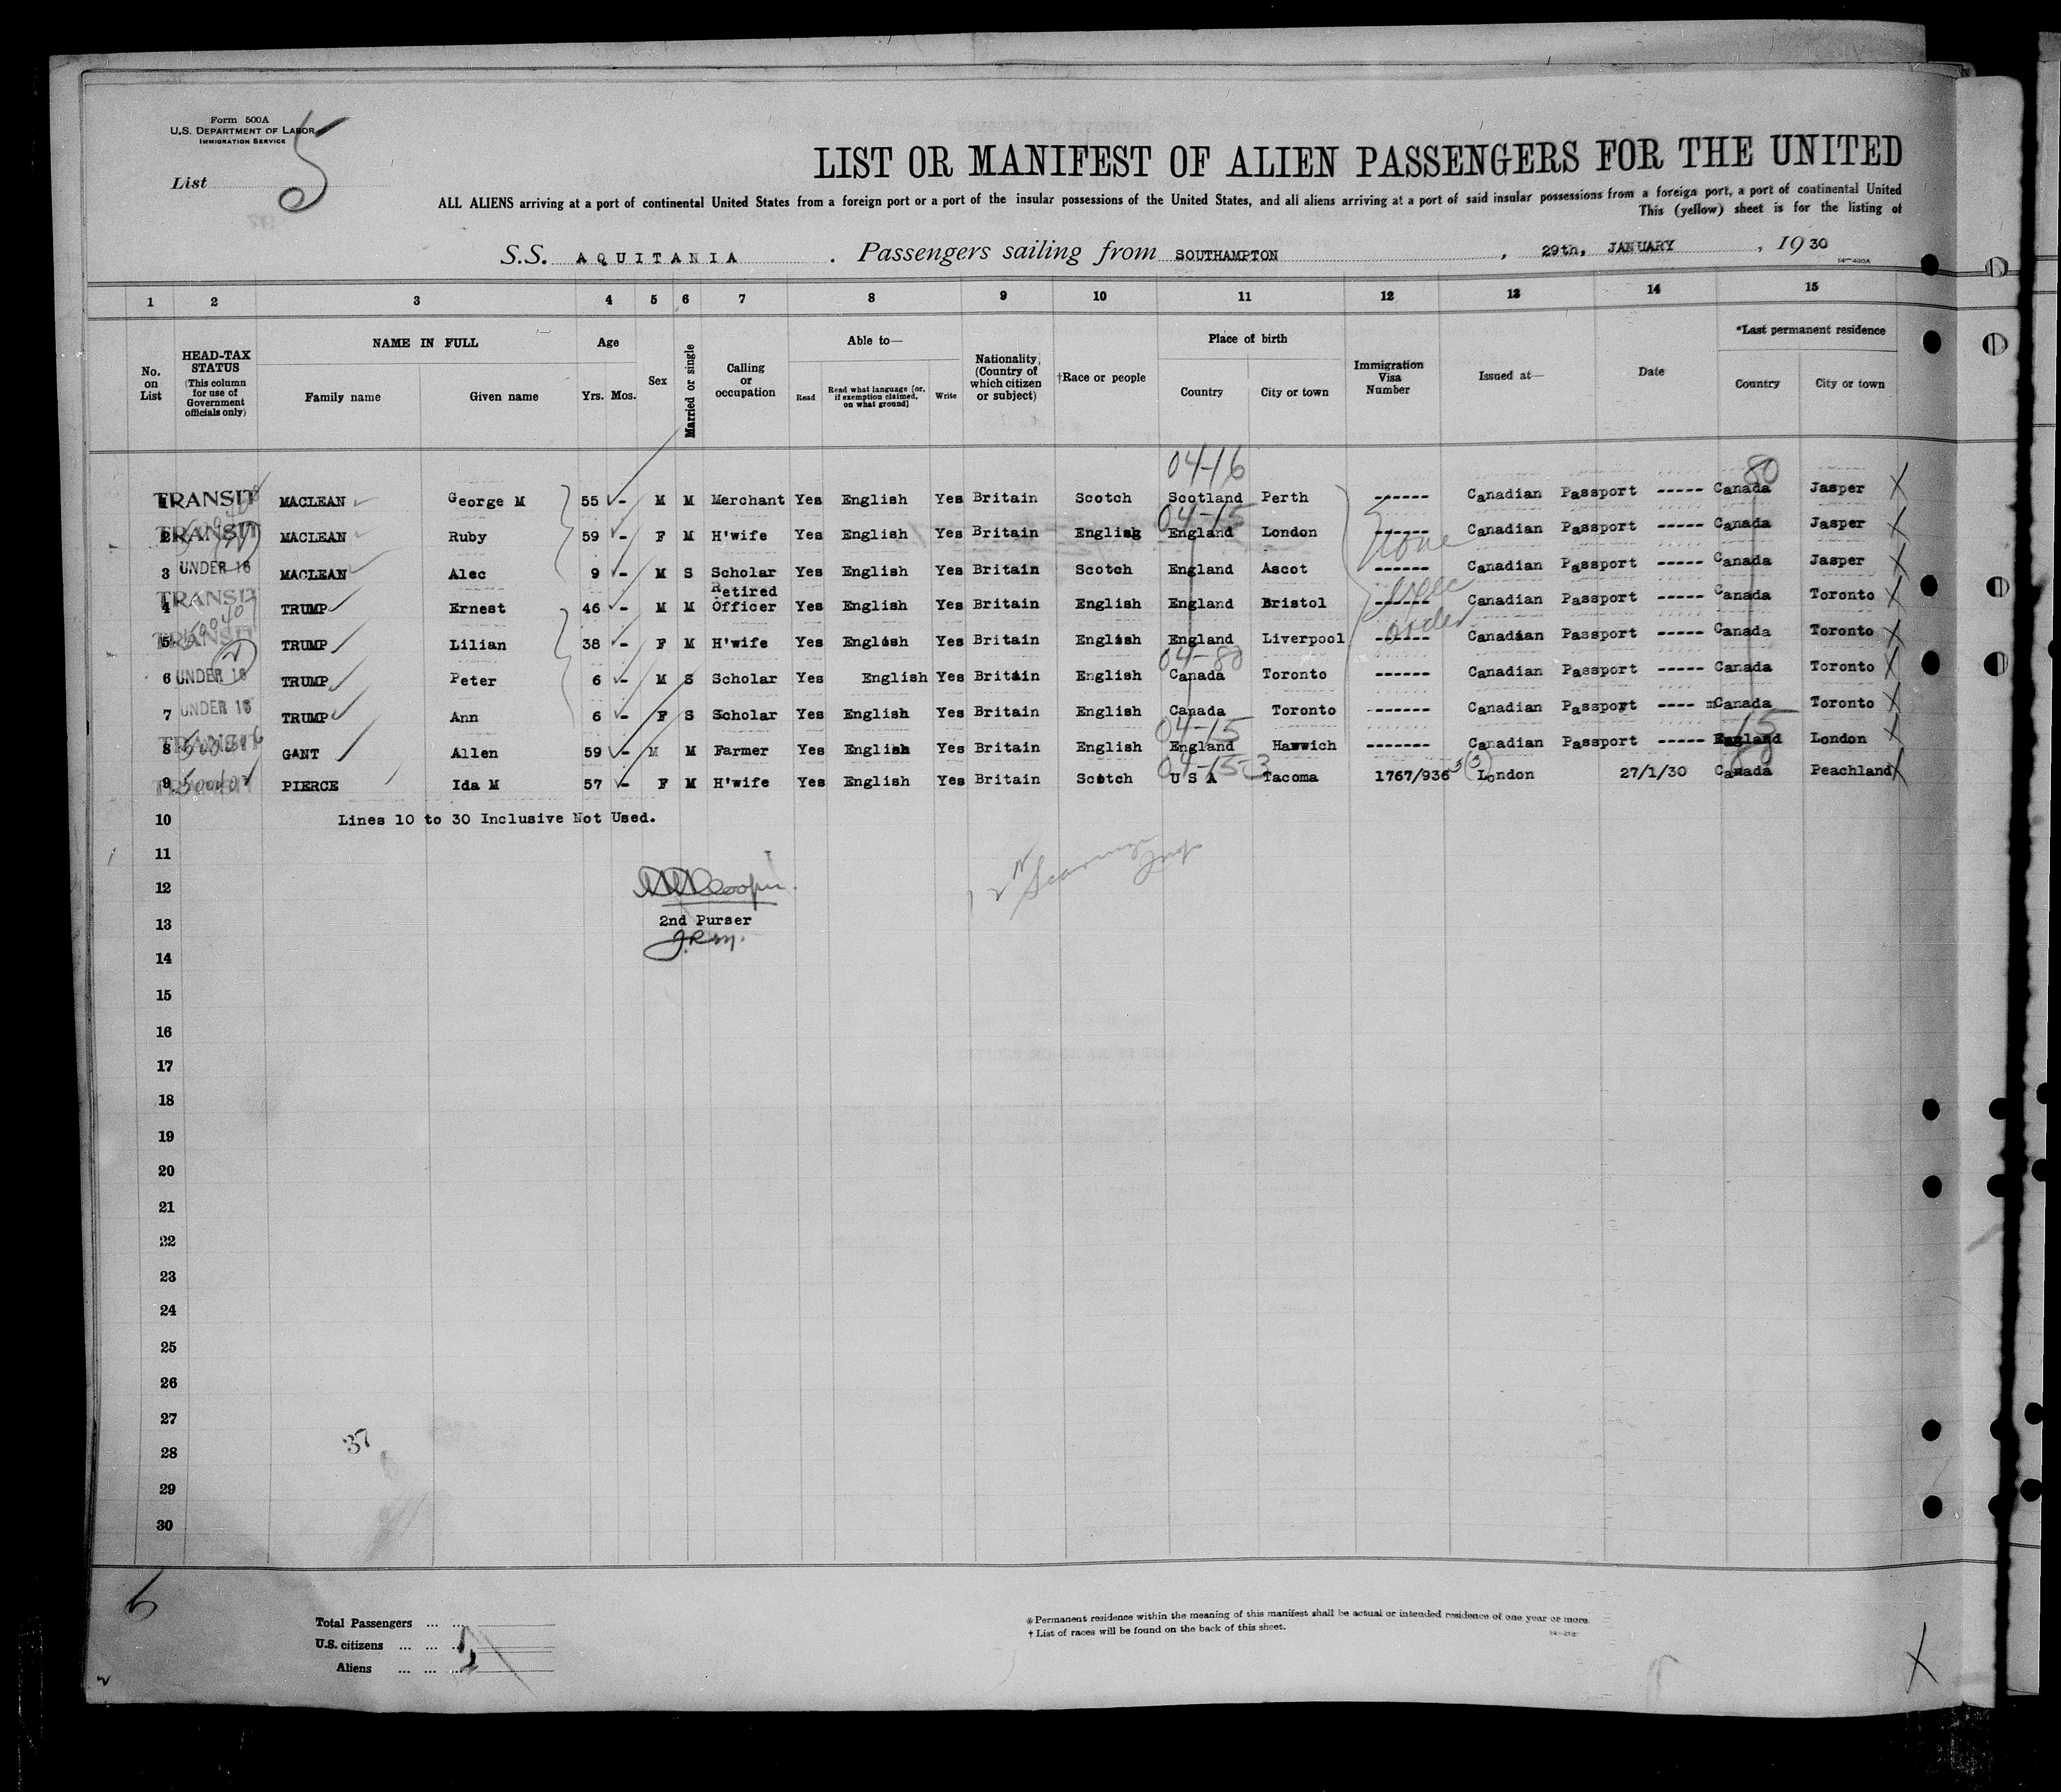 Form 500A
U.S. DEPARTMENT OF LABOR
IMMIGRATION SERVICE
List 5
LIST OR MANIFEST OF ALIEN PASSENGERS FOR THE UNITED
ALL ALIENS arriving at a port of continental United States from a foreign port or a port of the insular possessions of the United States, and all aliens arriving at a port of said insular possessions from a foreign port, a port of continental United
This (yellow) sheet is for the listing of
S.S. AQUITANIA . Passengers sailing from SOUTHAMPTON , 29th, JANUARY , 19 30
1 2 3 4 5 6 7 8 9 10 11 12 13 14 15
No. on List
HEAD-TAX STATUS (This column for use of Government officials only)
NAME IN FULL
Family name Given name
Age
Yrs. Mos.
Sex
Married or single
Calling or occupation
Able to—
Read
Read what language [or, if exemption claimed, on what ground]
Write
Nationality (Country of which citizen or subject)
†Race or people
Place of birth
Country City or town
Immigration Visa Number
Issued at—
Date
*Last permanent residence
Country City or town
04-16 80
1 TRANSIT MACLEAN George M 55 - M M Merchant Yes English Yes Britain Scotch Scotland Perth ------ Canadian Passport ----- Canada Jasper X
04-15
2 TRANSIT MACLEAN Ruby 59 - F M H'wife Yes English Yes Britain English England London ------ Canadian Passport ----- Canada Jasper X
none
3 UNDER 16 MACLEAN Alec 9 - M S Scholar Yes English Yes Britain Scotch England Ascot ------ Canadian Passport ----- Canada Jasper X
4 TRANSIT TRUMP Ernest 46 - M M Retired Officer Yes English Yes Britain English England Bristol ------ Canadian Passport ----- Canada Toronto X
order
5 TRANSIT TRUMP Lilian 38 - F M H'wife Yes English Yes Britain English England Liverpool ------ Canadian Passport ----- Canada Toronto X
04-80
6 UNDER 16 TRUMP Peter 6 - M S Scholar Yes English Yes Britain English Canada Toronto ------ Canadian Passport ----- Canada Toronto X
7 UNDER 16 TRUMP Ann 6 - F S Scholar Yes English Yes Britain English Canada Toronto ------- Canadian Passport ---- Canada Toronto X
04-15 15
8 TRANSIT GANT Allen 59 - M M Farmer Yes English Yes Britain English England Harwich ------- Canadian Passport ----- England London X
04-15-3 80
9 PIERCE Ida M 57 - F M H'wife Yes English Yes Britain Scotch U S A Tacoma 1767/936 London 27/1/30 Canada Peachland X
10 Lines 10 to 30 Inclusive Not Used.
11
12
13 2nd Purser
14
15
16
17
18
19
20
21
22
23
24
25
26
27
37
28
29
30
6
Total Passengers ... ...
U.S. citizens ... ... ...
Aliens ... ... ...
* Permanent residence within the meaning of this manifest shall be actual or intended residence of one year or more.
† List of races will be found on the back of this sheet.
X